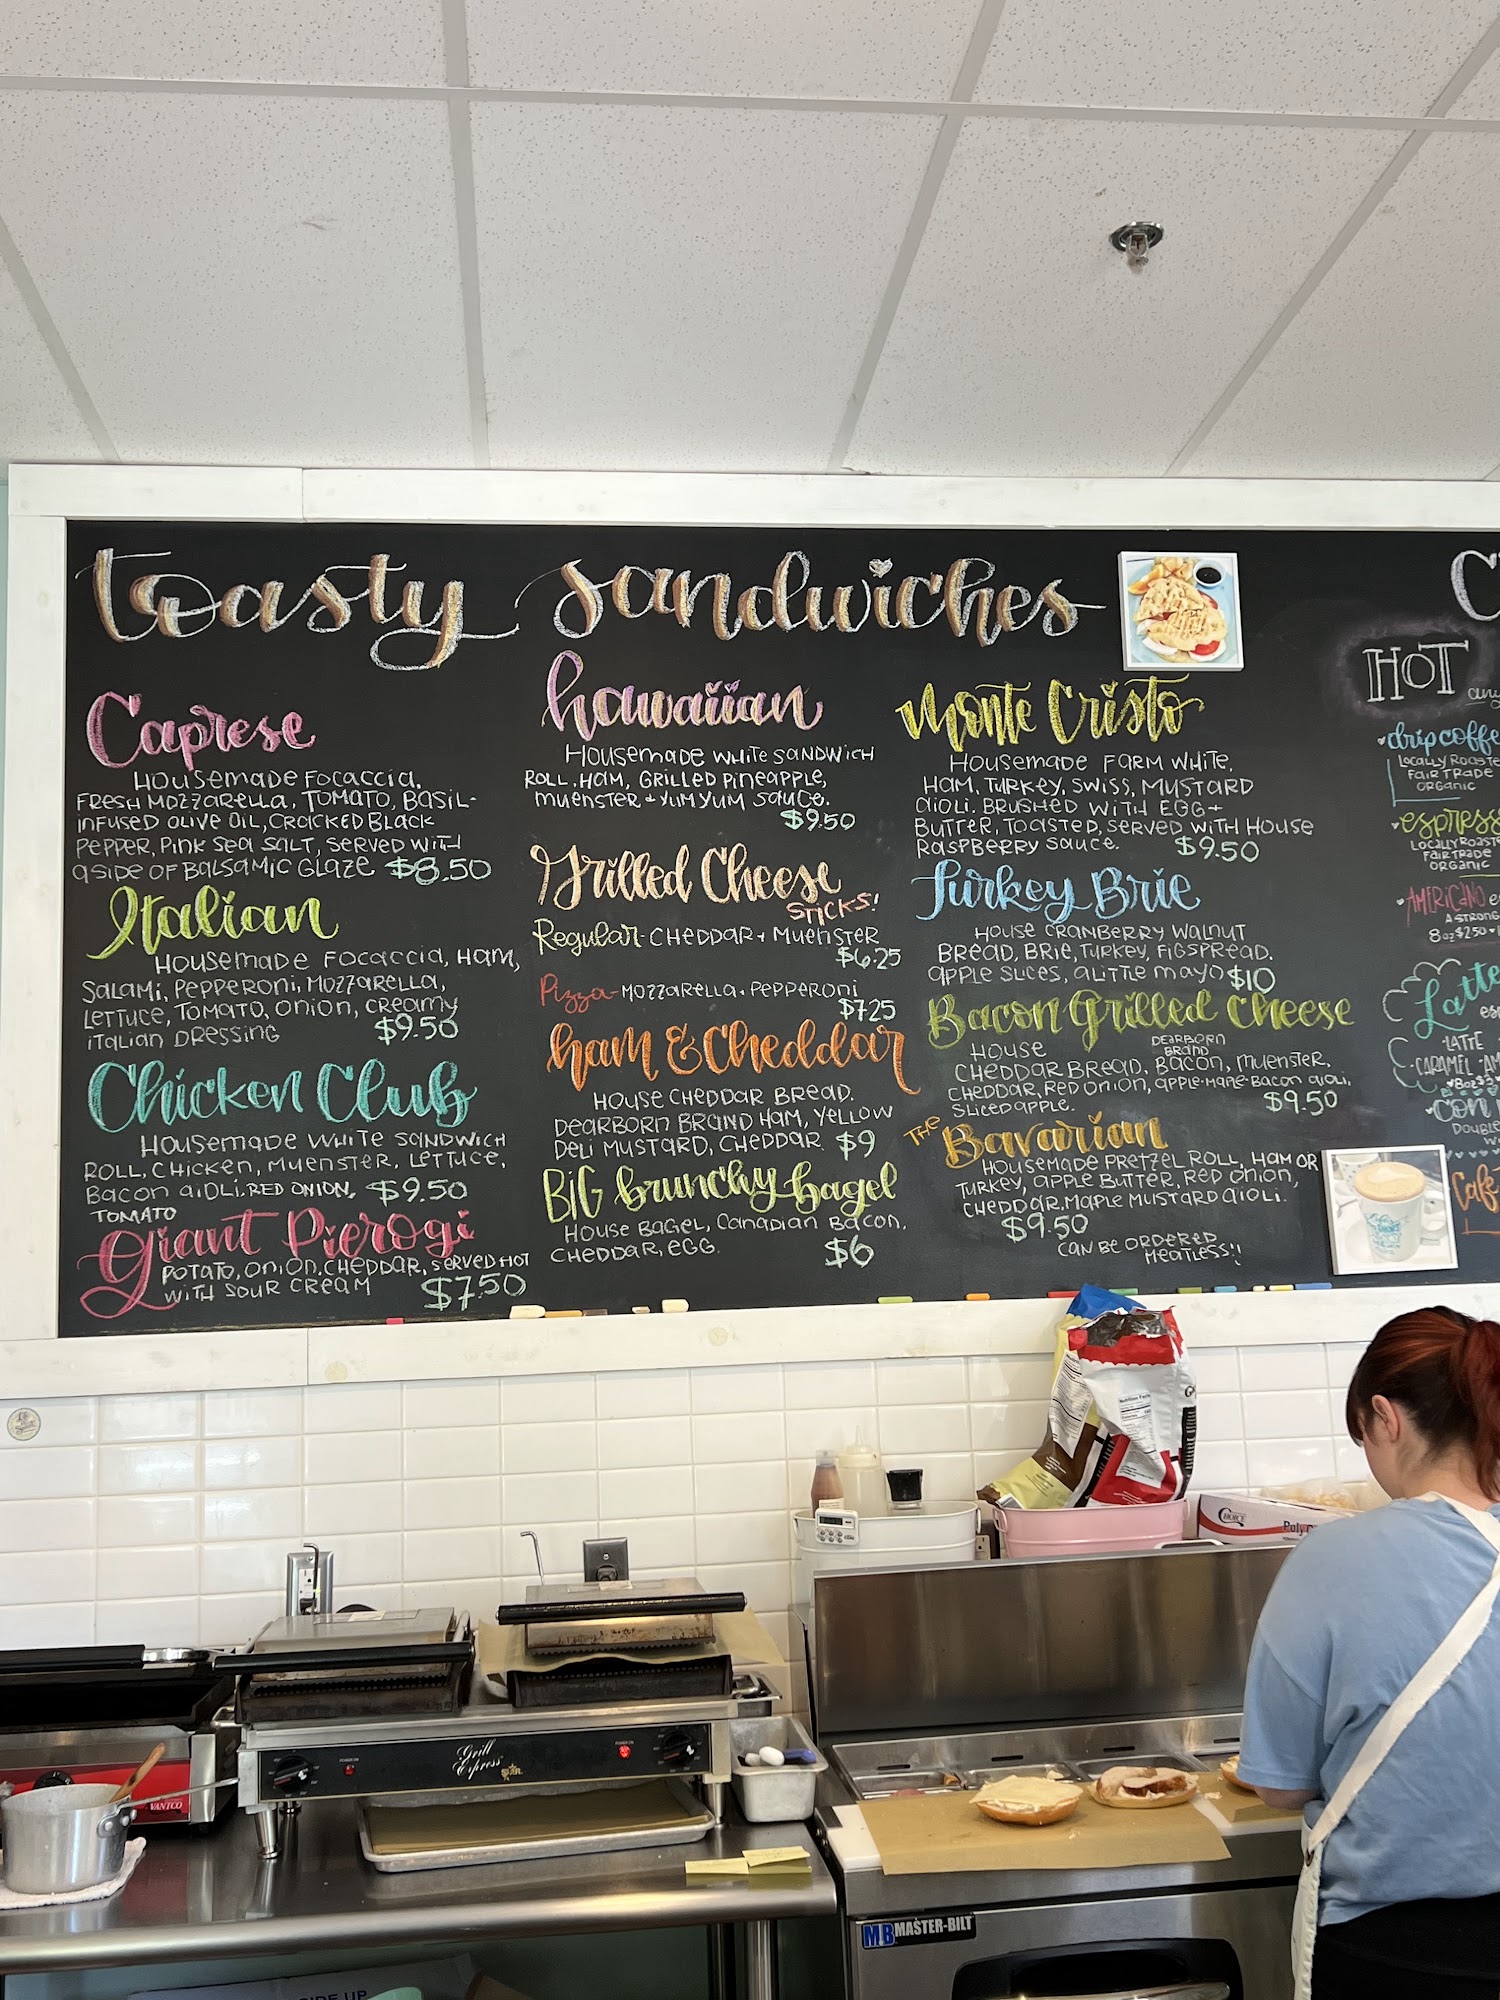 toasty sandwiches
Caprese
Housemade Focaccia,
Fresh Mozzarella, Tomato, Basil-
infused olive oil, cracked black
pepper, pink sea salt, served with
a side of Balsamic Glaze $8.50
Italian
Housemade Focaccia, Ham,
Salami, Pepperoni, Mozzarella,
Lettuce, Tomato, onion, creamy
italian Dressing $9.50
Chicken Club
Housemade white sandwich
roll, chicken, muenster, lettuce,
Bacon aioli, red onion, $9.50
Tomato
Giant Pierogi
Potato, onion, cheddar, served hot
with sour cream $7.50
hawaiian
Housemade white sandwich
roll, ham, grilled pineapple,
muenster + yum yum sauce.
$9.50
Grilled Cheese
Sticks!
Regular - Cheddar + Muenster
$6.25
Pizza - Mozzarella + Pepperoni
$7.25
ham & Cheddar
House cheddar bread.
Dearborn brand ham, yellow
deli mustard, cheddar $9
BIG brunchy bagel
House bagel, Canadian bacon,
cheddar, egg. $6
Monte Cristo
Housemade farm white,
ham, turkey, swiss, mustard
aioli. Brushed with egg +
butter, toasted, served with house
raspberry sauce. $9.50
Turkey Brie
House cranberry walnut
bread, brie, turkey, fig spread,
apple slices, a little mayo $10
Bacon Grilled Cheese
House Dearborn Brand
cheddar bread, bacon, muenster,
cheddar, red onion, apple-maple-bacon aioli,
sliced apple. $9.50
The Bavarian
Housemade pretzel roll, ham or
turkey, apple butter, red onion,
cheddar, maple mustard aioli.
$9.50
can be ordered
meatless!!
HOT
any
drip coffe
Locally roaste
fair trade
organic
espress
Locally roaste
fair trade
organic
Americano
a strong
8oz $2.50
Latte
Latte
Caramel
Con
Double
Café
Nutrition Facts
CHOICE
Poly
Grill
Express
STAR
POWER ON
POWER ON
VANTCO
MB MASTER-BILT
SIDE UP